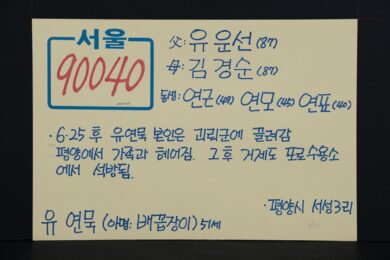 서울
90040
父: 유운선 (87)
母: 김경순 (87)
동생: 연근 (48) 연모 (45) 연표 (40)
· 6.25 후 유연묵 본인은 괴뢰군에 끌려감
평양에서 가족과 헤어짐. 그 후 거제도 포로수용소
에서 석방됨.
· 평양시 서성3리
유 연묵 (아명: 배꼽장이) 51세